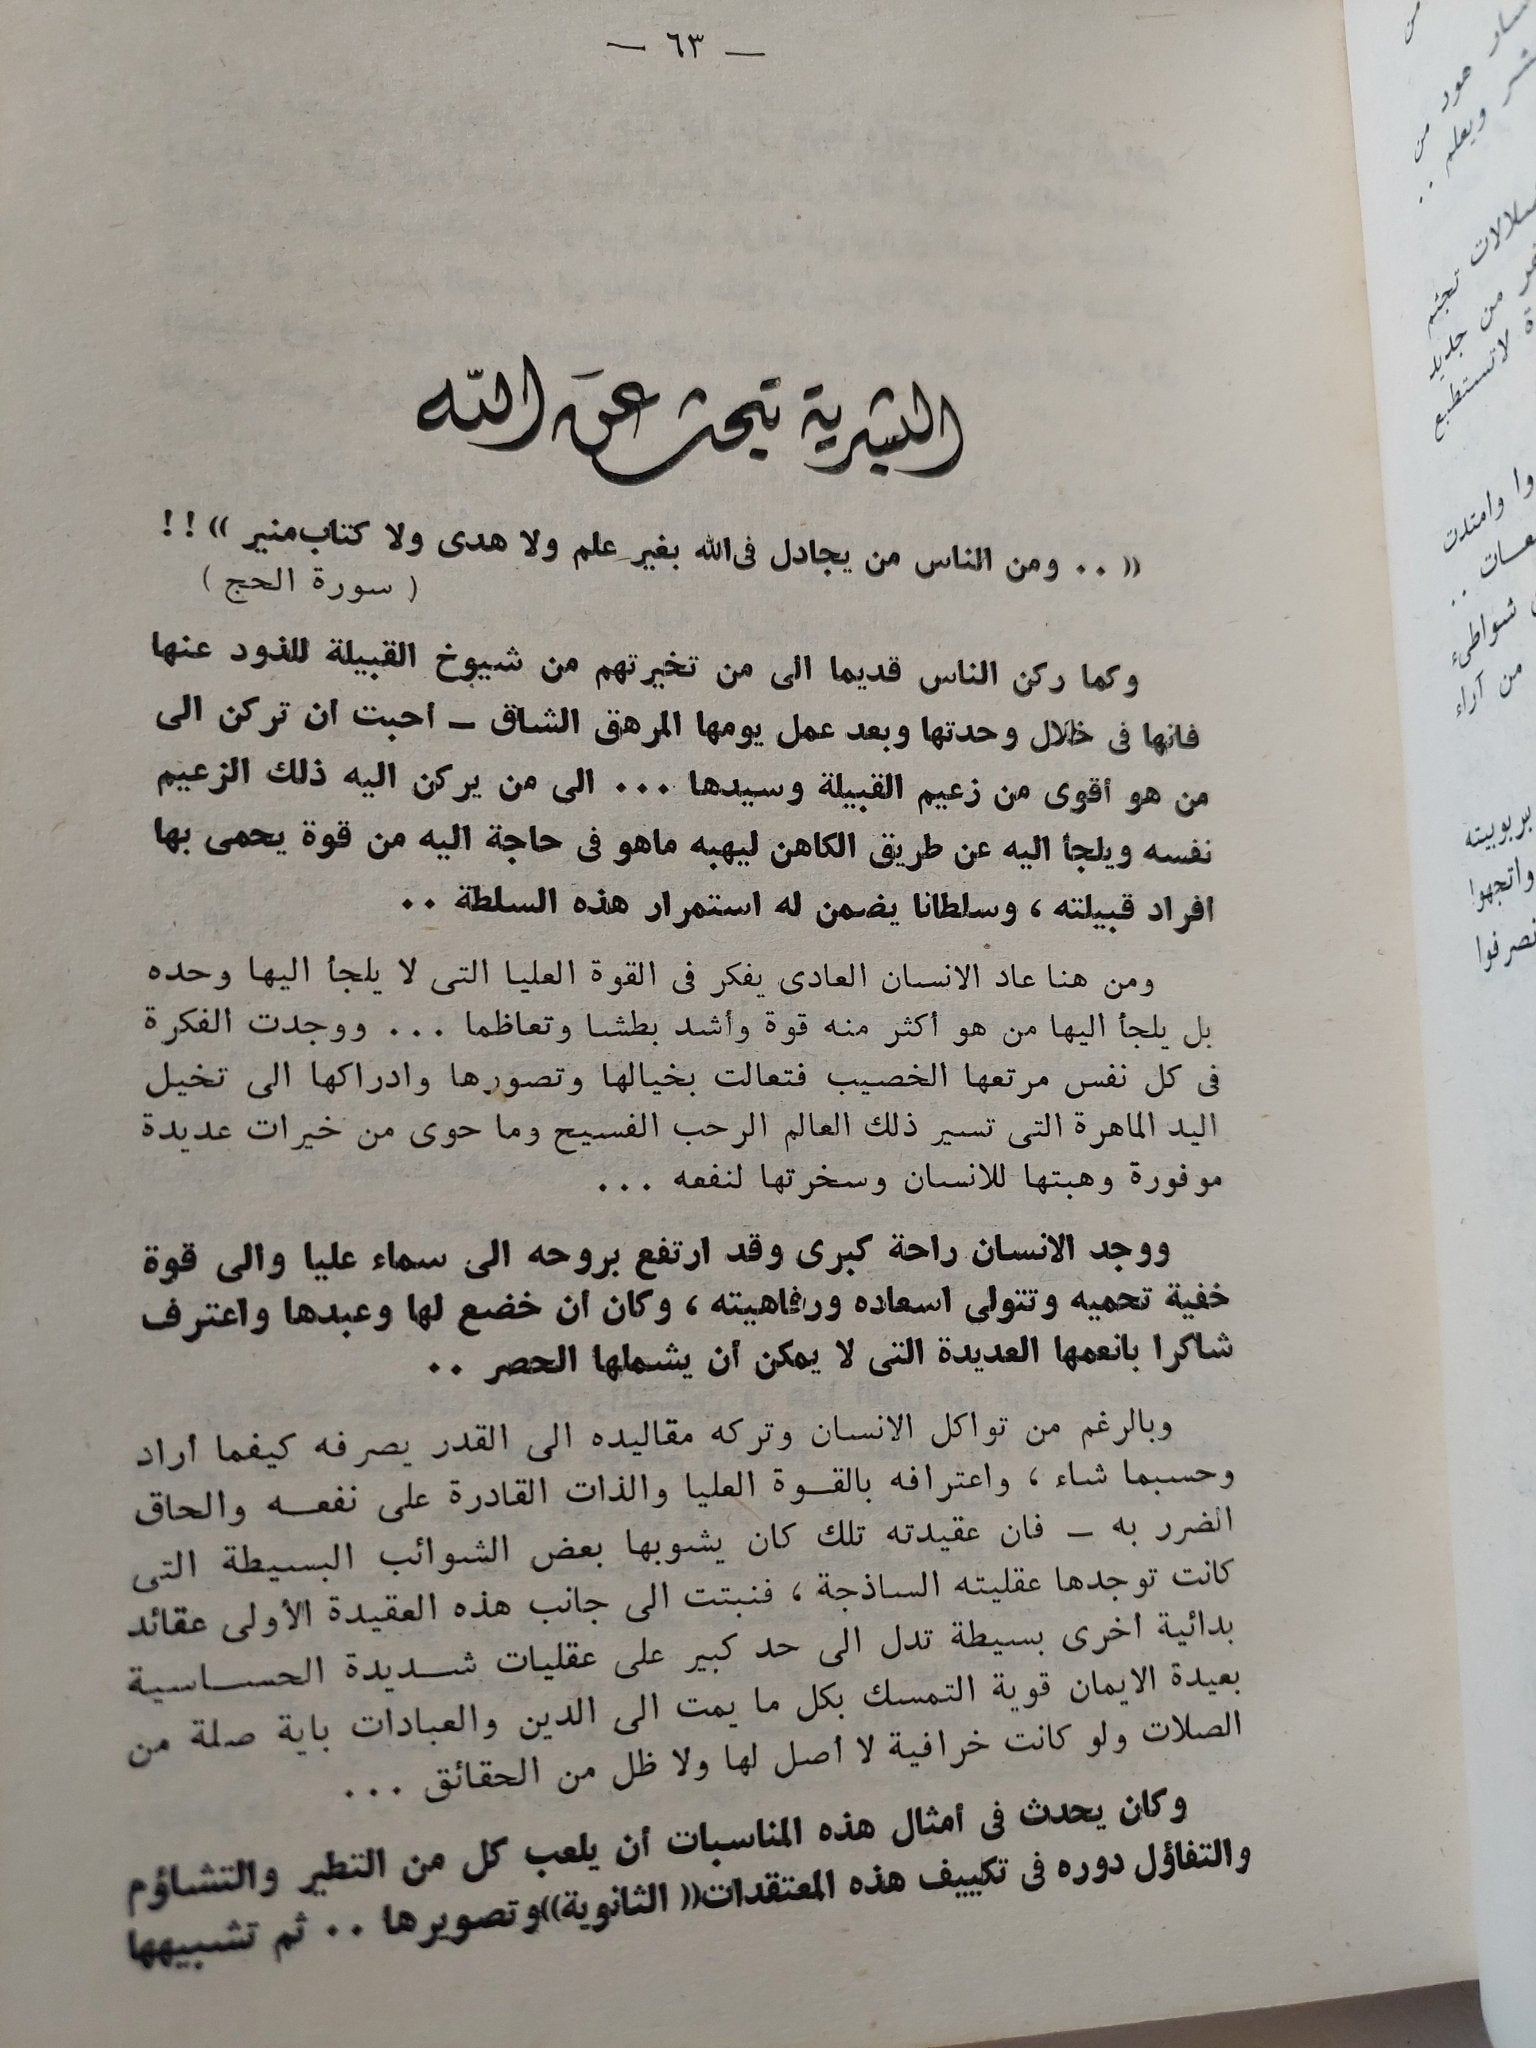 — ٦٣ —
البشرية تبحث عن الله
(( ٠٠ ومن الناس من يجادل فى الله بغير علم ولا هدى ولا كتاب منير )) ! !
( سورة الحج )
وكما ركن الناس قديما الى من تخيرتهم من شيوخ القبيلة للذود عنها
فانها فى خلال وحدتها وبعد عمل يومها المرهق الشاق — احبت ان تركن الى
من هو أقوى من زعيم القبيلة وسيدها ٠٠٠ الى من يركن اليه ذلك الزعيم
نفسه ويلجأ اليه عن طريق الكاهن ليهبه ماهو فى حاجة اليه من قوة يحمى بها
افراد قبيلته ، وسلطانا يضمن له استمرار هذه السلطة ٠٠
ومن هنا عاد الانسان العادى يفكر فى القوة العليا التى لا يلجأ اليها وحده
بل يلجأ اليها من هو أكثر منه قوة وأشد بطشا وتعاظما ٠٠٠ ووجدت الفكرة
فى كل نفس مرتعها الخصيب فتعالت بخيالها وتصورها وادراكها الى تخيل
اليد الماهرة التى تسير ذلك العالم الرحب الفسيح وما حوى من خيرات عديدة
موفورة وهبتها للانسان وسخرتها لنفعه ٠٠٠
ووجد الانسان راحة كبرى وقد ارتفع بروحه الى سماء عليا والى قوة
خفية تحميه وتتولى اسعاده ورفاهيته ، وكان أن خضع لها وعبدها واعترف
شاكرا بانعمها العديدة التى لا يمكن أن يشملها الحصر ٠٠
وبالرغم من تواكل الانسان وتركه مقاليده الى القدر يصرفه كيفما أراد
وحسبما شاء ، واعترافه بالقوة العليا والذات القادرة على نفعه والحاق
الضرر به — فان عقيدته تلك كان يشوبها بعض الشوائب البسيطة التى
كانت توجدها عقليته الساذجة ، فنبتت الى جانب هذه العقيدة الأولى عقائد
بدائية أخرى بسيطة تدل الى حد كبير على عقليات شديدة الحساسية
بعيدة الايمان قوية التمسك بكل ما يمت الى الدين والعبادات باية صلة من
الصلات ولو كانت خرافية لا أصل لها ولا ظل من الحقائق ٠٠٠
وكان يحدث فى أمثال هذه المناسبات أن يلعب كل من التطير والتشاؤم
والتفاؤل دوره فى تكييف هذه المعتقدات (( الثانوية )) وتصويرها ٠٠ ثم تشبيهها
من
هود من
ويعلم ٠٠
تجثم
من جديد
لاتستطيع
وامتدت
شواطىء
من آراء
بربوبيته
واتجهوا